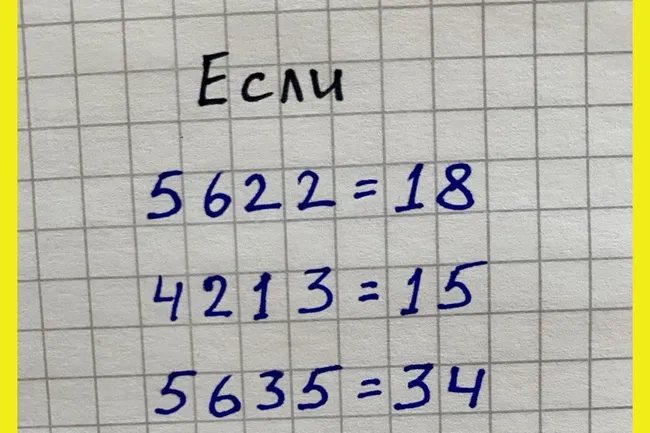 Если
5622=18
4213=15
5635=34